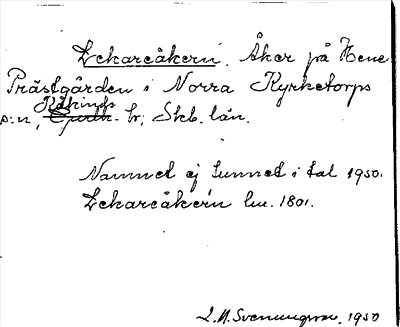 Lekareåkern. Åker på Hene
Prästgården i Norra Kyrketorps
Kåkinds
s:n, Gudh. hr; Skb. län.
Namnet ej funnet i tal 1950.
Lekareåkern lm. 1801.
S. M. Svenungson. 1950